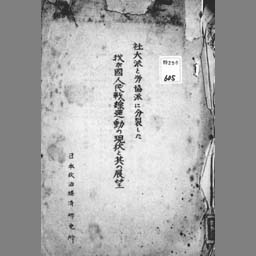 社大派と労協派に分裂した
我が國人民戰線運動の現状と其の展望
日本政治経済研究所
605